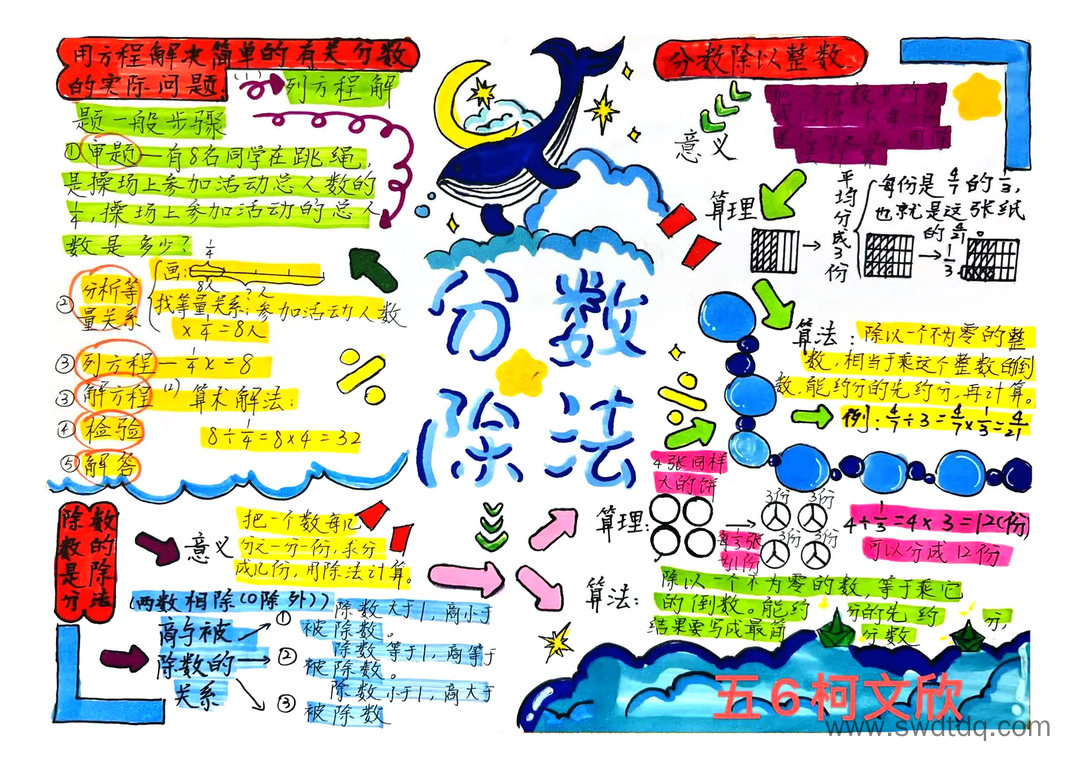 用方程解决简单的有关分数
的实际问题
(1)
列方程解
题一般步骤
①审题—有8名同学在跳绳,
是操场上参加活动总人数的
1/4,操场上参加活动的总人
数是多少?
② 分析等
量关系
画:
1/4
8人
?人
找等量关系:参加活动人数
×1/4=8人
③ 列方程—1/4x=8
③ 解方程
④ 检验
⑤ 解答
(2) 算术解法:
8÷1/4=8×4=32
分数
除法
分数除以整数
意义
算理
平均分成3份
每份是4/7的1/3,
也就是这张纸
的4/21。
→1/3
算法:除以一个不为零的整
数,相当于乘这个整数的倒
数,能约分的先约分,再计算。
例:4/7÷3=4/7×1/3=4/21
除数是分
数的除法
意义
把一个数每几
分之一分一份,求分
成几份,用除法计算。
(两数相除(0除外))
商与被
除数的
关系
① 除数大于1,商小于
被除数。
② 除数等于1,商等于
被除数。
③ 除数小于1,商大于
被除数
4张同样
大的饼
算理:
每1/3张
为1份
3份
3份
3份
3份
4÷1/3=4×3=12(份)
可以分成12份
算法:
除以一个不为零的数,等于乘它
的倒数。能约分的先约分,
结果要写成最简分数
五6柯文欣
www.swdtdq.com